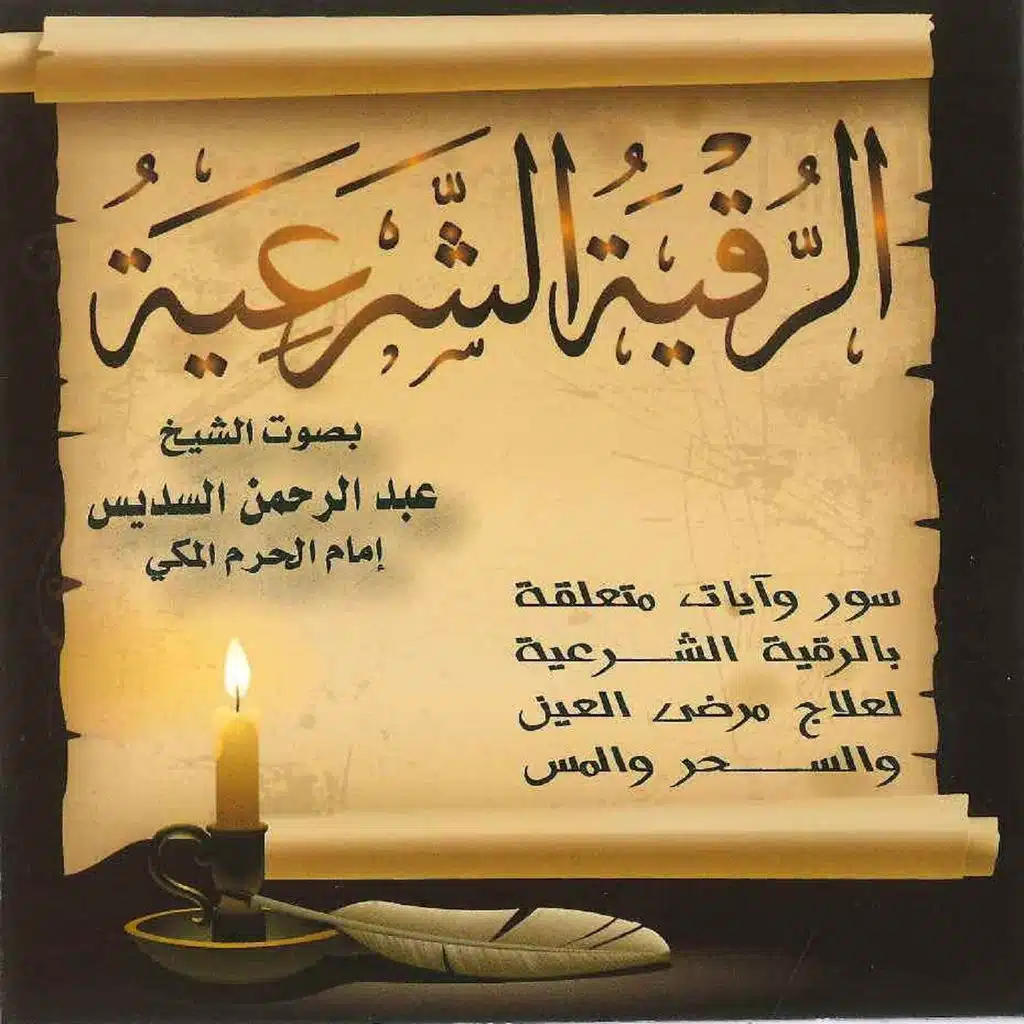 الرُّقيَةُ الشَّرعيَةُ
بصوت الشيخ
عبد الرحمن السديس
إمام الحرم المكي
سور وآيات متعلقة
بالرقية الشـــرعية
لعلاج مرضى العين
والســـحر والمس